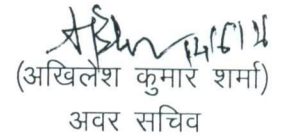 14/6/16
(अखिलेश कुमार शर्मा)
अवर सचिव